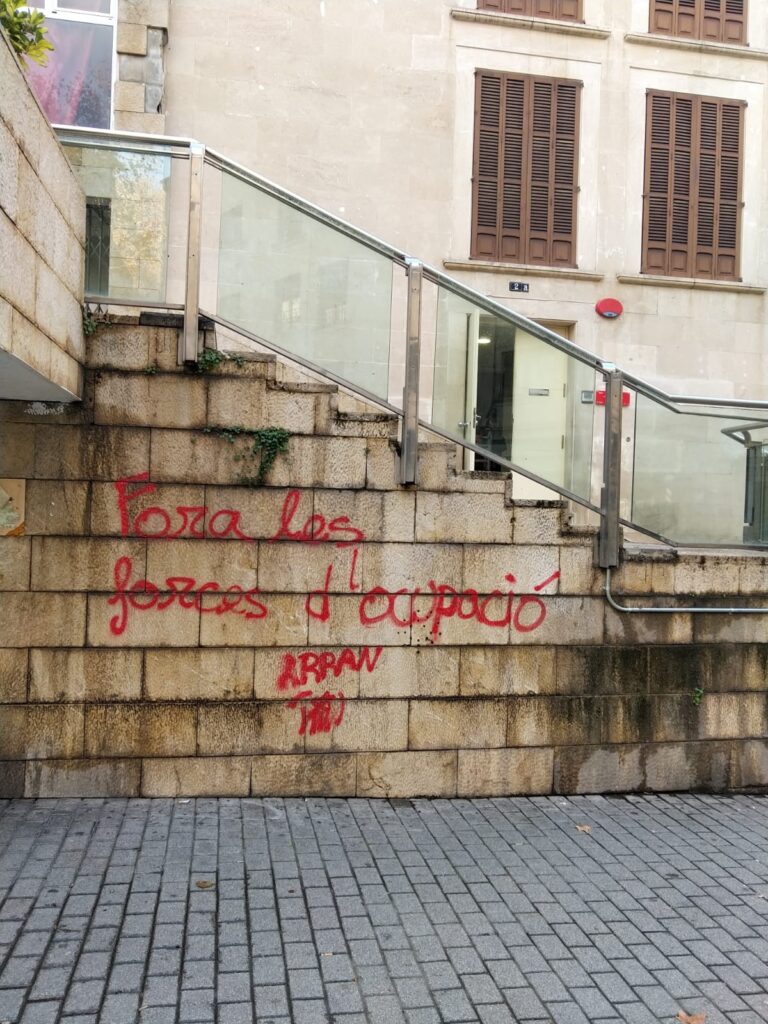 2 A
Fora les
forces d'ocupació
ARRAN